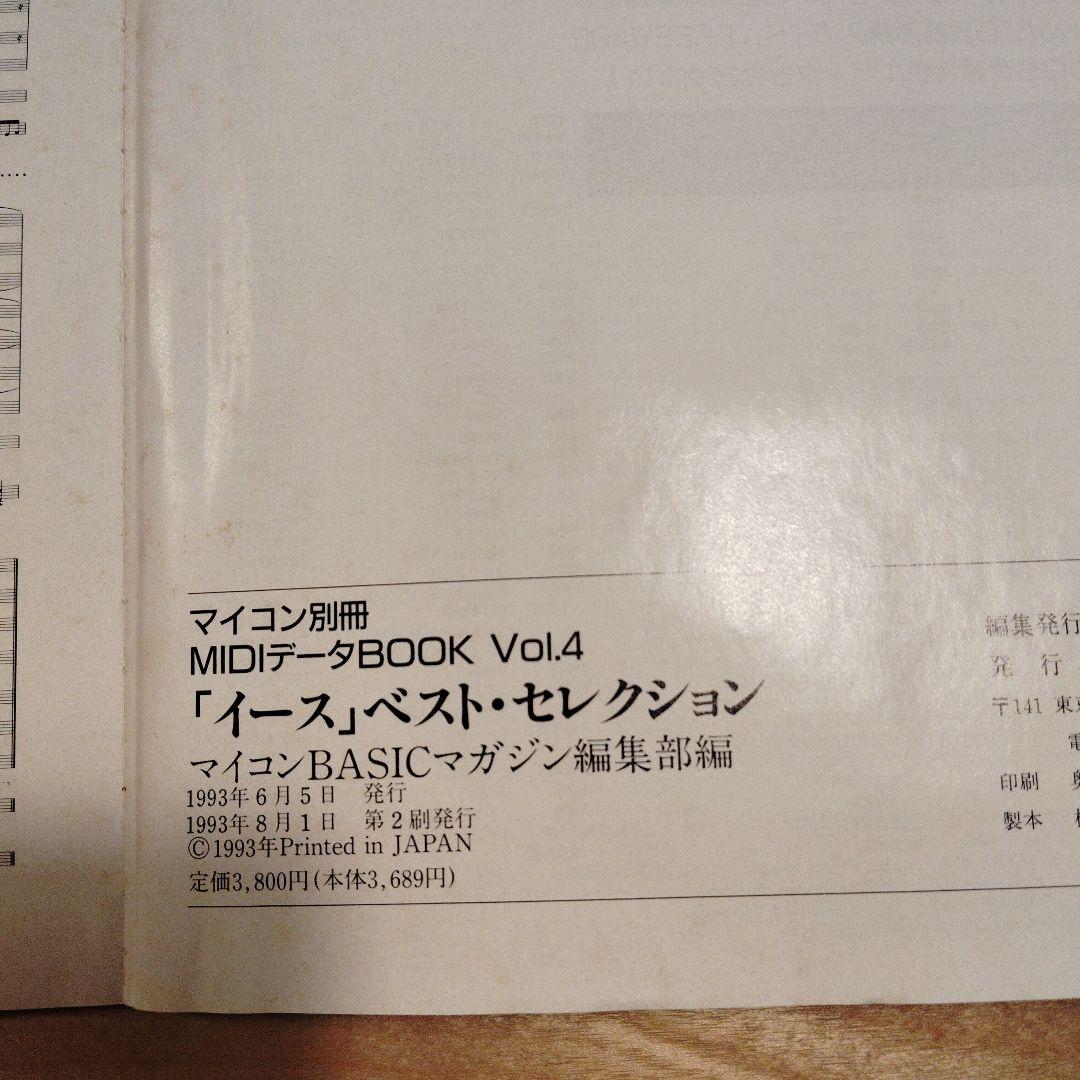 マイコン別冊
MIDIデータBOOK Vol.4
「イース」ベスト・セレクション
マイコンBASICマガジン編集部編
1993年6月5日 発行
1993年8月1日 第2刷発行
©1993年Printed in JAPAN
定価3,800円(本体3,689円)
編集発行
発 行
〒141 東
印刷
製本